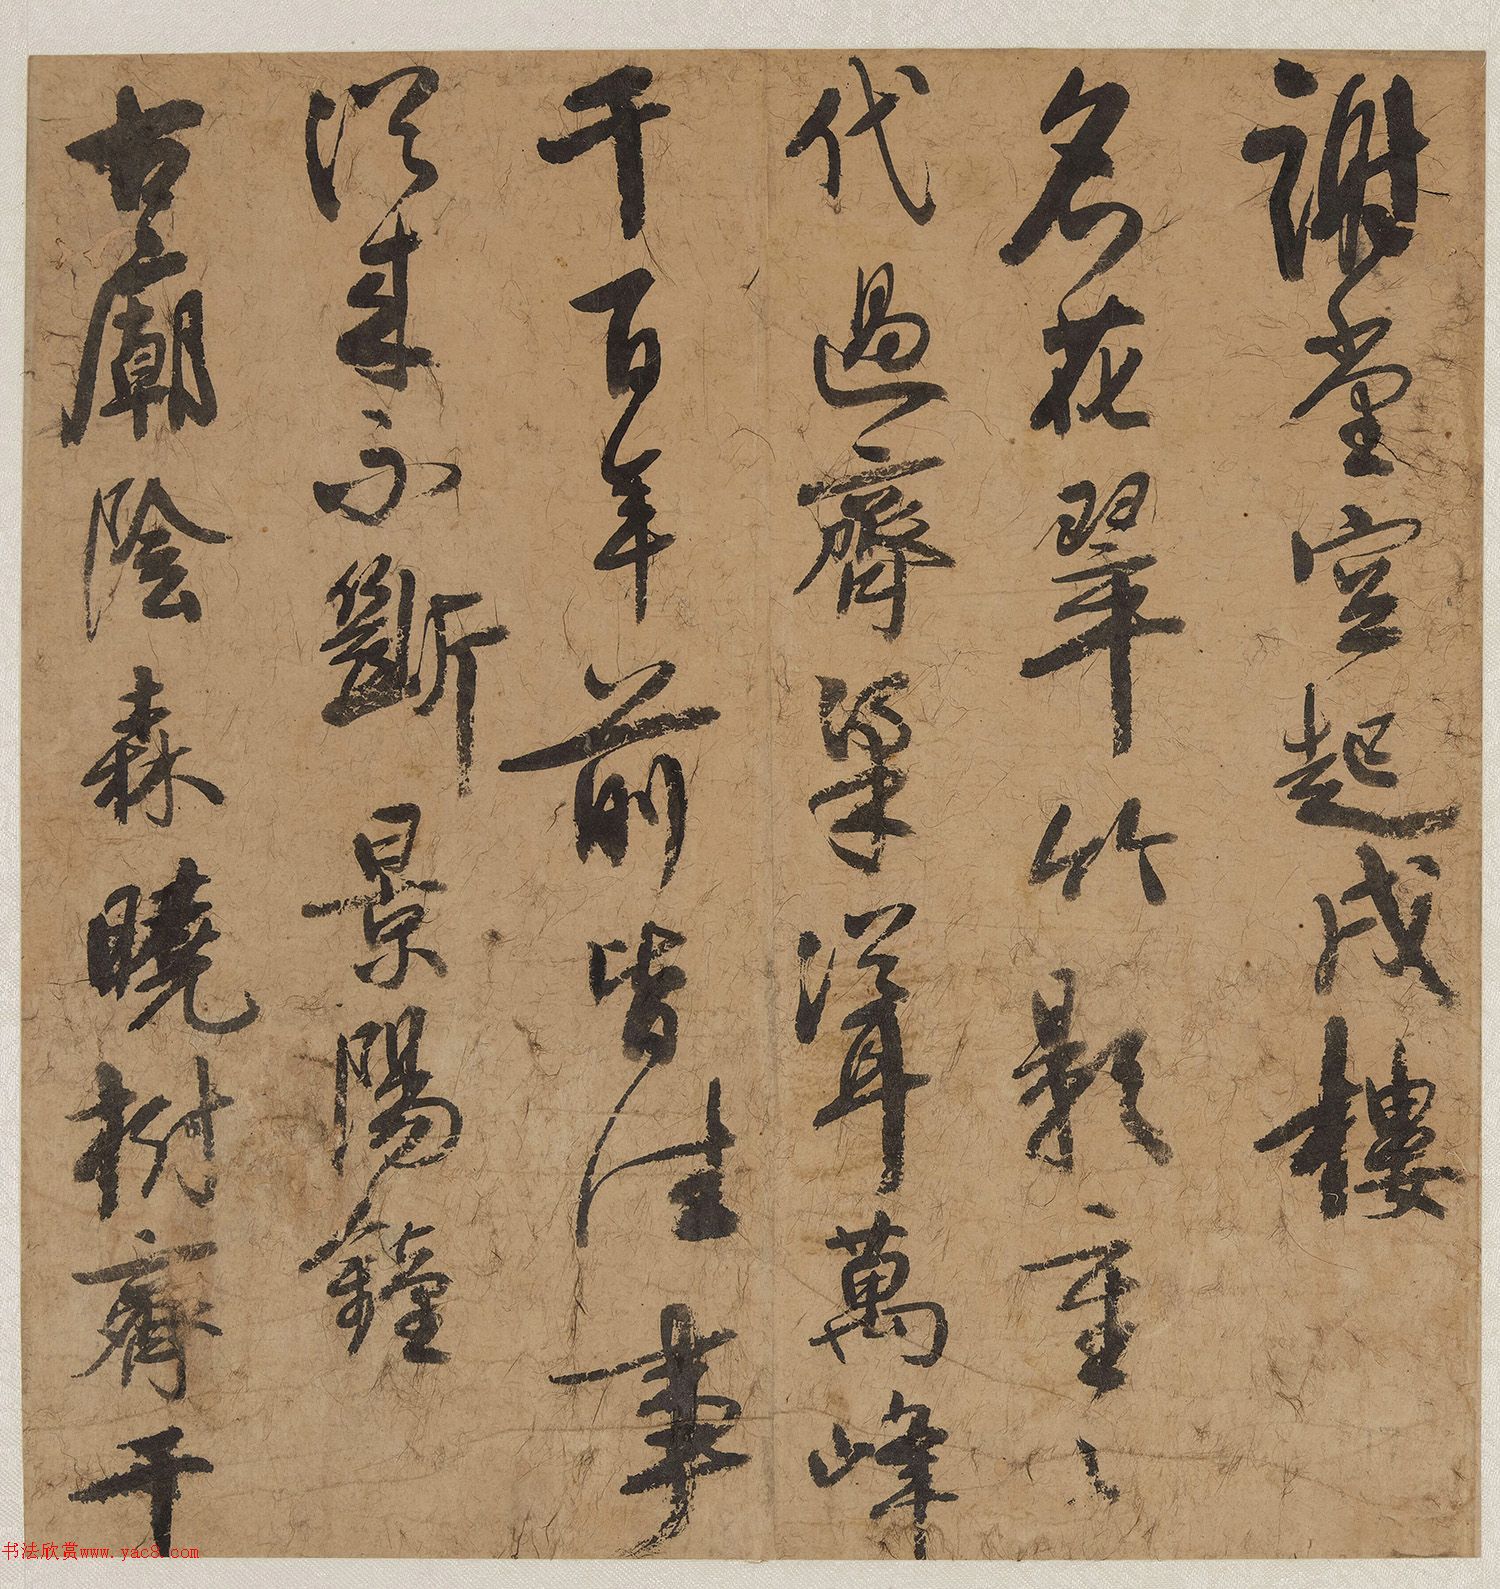 謝堂空起戍樓
名花翠竹影重〻
代過齊梁聳萬峰
千百年前皆往事
從來不斷景陽鐘
古廟陰森曉樹齊千
书法欣赏www.yac8.com